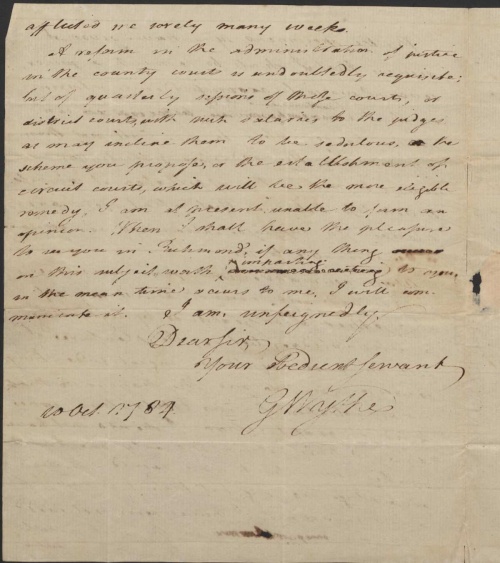 afflicted me sorely many weeks.
A reform in the administration of justice
in the county court is undoubtedly requisite:
but of quarterly sessions of those courts, or
district courts, with such salaries to the judges
as may incline them to be sedulous, the
scheme you propose, or the establishment of
circuit courts, which will be the more eligible
remedy, I am at present unable to form an
opinion. When I shall have the pleasure
to see you in Richmond, if any thing
on this subject worth imparting to you
in the mean time occurs to me, I will com-
municate it. I am, unfeignedly,
Dear Sir,
Your obedient servant
G Wythe
20 Oct. 1784